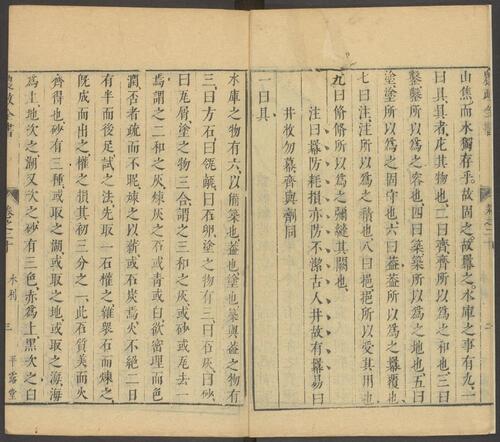 山焦而水獨存乎故固之故冪之水庫之事有九一
曰具具者庀其物也二曰齊齊所以爲之和也三曰
鑿鑿所以爲之容也四曰築築所以爲之地也五曰
塗塗所以爲之固守也六曰蓋蓋所以爲之冪覆也
七曰注注所以爲之積也八曰挹挹所以受其用也
九曰脩脩所以爲之彌縫其闕也
注曰冪防耗損亦防不潔古人井故有冪易曰
井收勿幕齊與劑同
一曰具
水庫之物有六以備築也蓋也塗也築與蓋之物有
三曰方石曰瓴甋曰石卵塗之物有三曰石灰曰砂
曰瓦屑塗之物三合謂之三和之灰或砂或瓦去一
焉謂之二和之灰煉灰之石或青或白欲密理而色
潤否者疏而不昵煉之以薪或石炭焉火不絕二日
有半而後足試之法先取一石權之雜衆石而煉之
既成而出之權之損其初三分之一此石質美而火
齊得也砂有三種或取之湖或取之地或取之海海
爲上地次之湖又次之砂有三色赤爲上黑次之白
農政全書 卷之二十 水利 三 平露堂